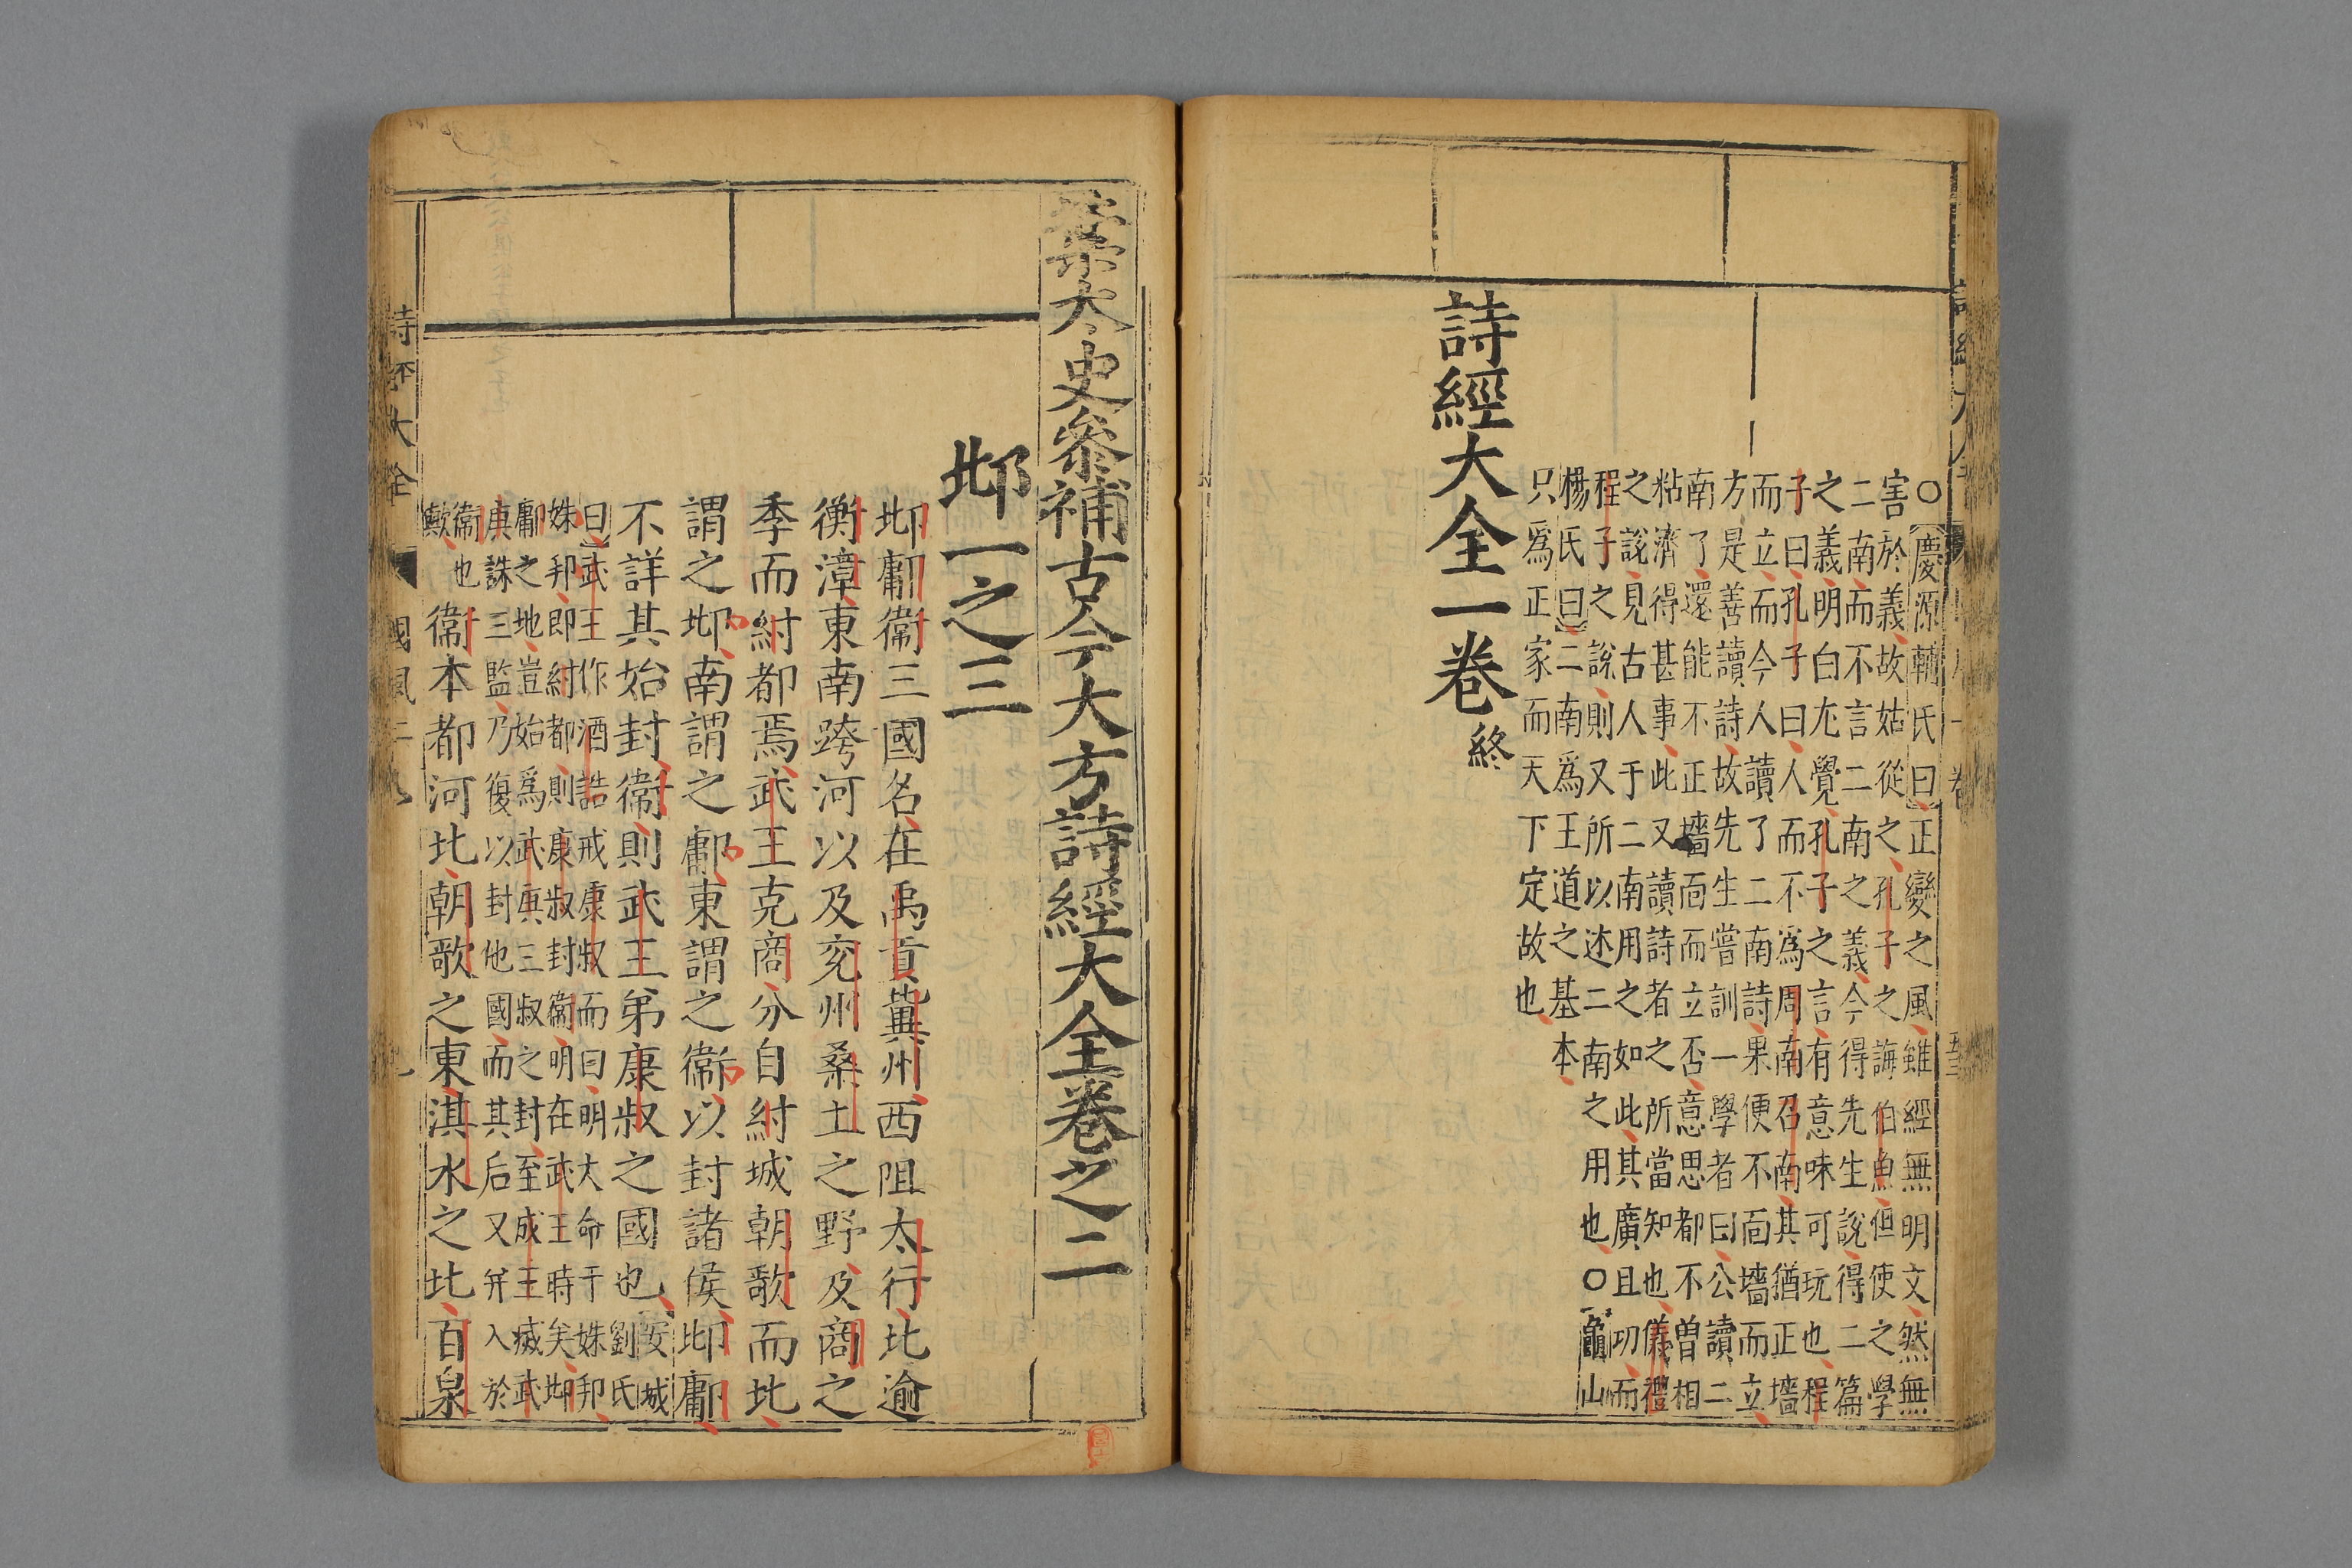 〇慶源輔氏曰正變之風雖經無明文然無
害於義故姑從之孔子之誨伯魚但使之學
二南而不言二南之義今得先生說得二篇
之義明白尤覺孔子之言有意味可玩也程
子曰孔子曰人而不爲周南召南其猶正墻
而立而今人讀了二南詩果便不靣墻而立
方是善讀詩故先生嘗訓一學者曰公讀二
南了還能不正墻靣而立否意思都不曾相
粘濟得甚事此又讀詩者之所當知也儀禮
之說見古人于二南用之如此其廣且功而
程子之說則又所以述二南之用也〇龜山
楊氏曰二南爲王道之基本
只爲正家而天下定故也
詩經大全一卷終
葉太史參補古今大方詩經大全卷之二
邶一之三
邶鄘衛三國名在禹貢冀州西阻太行北逾
衡漳東南跨河以及兗州桑土之野及商之
季而紂都焉武王克商分自紂城朝歌而北
謂之邶南謂之鄘東謂之衛以封諸侯邶鄘
不詳其始封衛則武王弟康叔之國也安城劉氏
曰武王作酒誥戒康叔而曰明大命于妹邦
妹邦即紂都則康叔封衛明在武王時矣邶
鄘之地豈始爲武庚三叔之封至成王㓕武
庚誅三監乃復以封他國而其后又并入於
衛也歟衛本都河北朝歌之東淇水之北百泉
詩經大全
國風